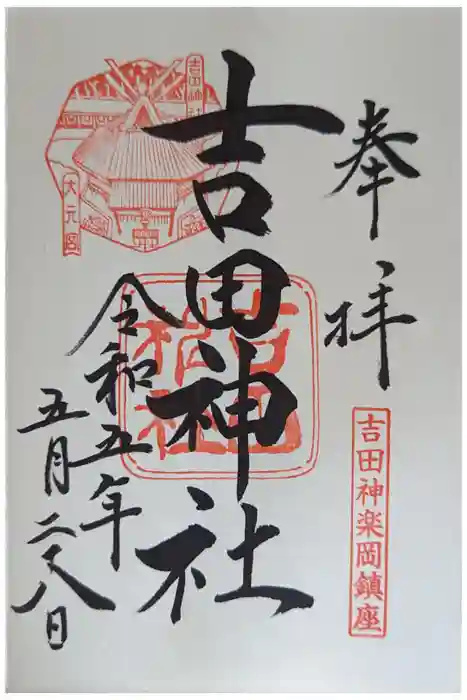 奉拝
吉田神楽岡鎮座
吉田神社
吉田神社
大元宮
吉田神社
令和五年
五月二十八日